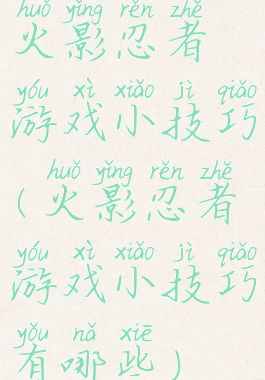 huǒ yǐng rěn zhě
火影忍者
yóu xì xiǎo jì qiǎo
游戏小技巧
huǒ yǐng rěn zhě
(火影忍者
yóu xì xiǎo jì qiǎo
游戏小技巧
yǒu nǎ xiē
有哪些)